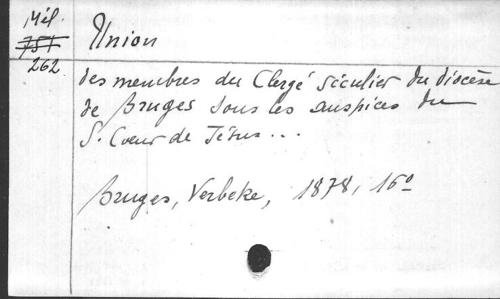 Mél.
751
262
Union
des membres du Clergé séculier du diocèse
de Bruges sous les auspices du
S. Coeur de Jésus...
Bruges, Verbeke, 1878, 16°